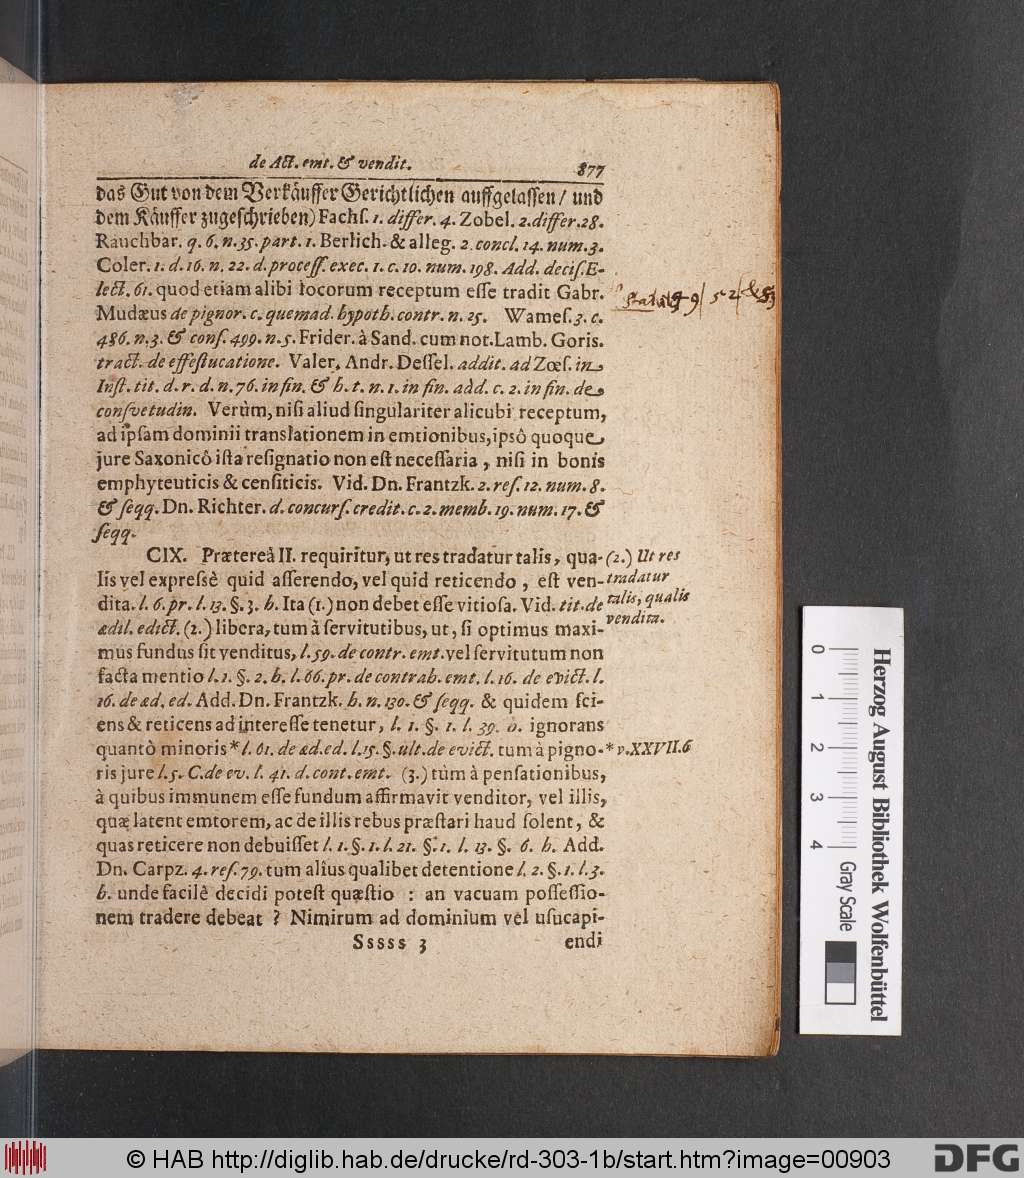 de Act. emt. & vendit. 877
das Gut von dem Verkäuffer Gerichtlichen auffgelassen / und
dem Käuffer zugeschrieben) Fachſ. 1. differ. 4. Zobel. 2. differ. 28.
Rauchbar. q. 6. n. 35. part. 1. Berlich. & alleg. 2. concl. 14. num. 3.
Coler. 1. d. 16. n. 22. d. proceſſ. exec. 1. c. 10. num. 198. Add. deciſ. E-
lect. 61. quod etiam alibi locorum receptum eſſe tradit Gabr.
Mudæus de pignor. c. quemad. hypoth. contr. n. 25. Wameſ. 3. c.
486. n. 3. & conſ. 499. n. 5. Frider. à Sand. cum not. Lamb. Goris.
tract. de effeſtucatione. Valer. Andr. Deſſel. addit. ad Zoœſ. in
Inſt. tit. d. r. d. n. 76. in fin. & h. t. n. 1. in fin. add. c. 2. in fin. de
conſvetudin. Verùm, niſi aliud ſingulariter alicubi receptum,
ad ipſam dominii translationem in emtionibus, ipsô quoque
jure Saxonicô iſta reſignatio non eſt neceſſaria, niſi in bonis
emphyteuticis & cenſiticis. Vid. Dn. Frantzk. 2. reſ. 12. num. 8.
& ſeqq. Dn. Richter. d. concurſ. credit. c. 2. memb. 19. num. 17. &
ſeqq.
CIX. Prætereà II. requiritur, ut res tradatur talis, qua-
lis vel expreſsè quid aſſerendo, vel quid reticendo, eſt ven-
dita. l. 6. pr. l. 13. §. 3. h. Ita (1.) non debet eſſe vitioſa. Vid. tit. de
ædil. edict. (2.) libera, tum à ſervitutibus, ut, ſi optimus maxi-
mus fundus ſit venditus, l. 59. de contr. emt. vel ſervitutum non
facta mentio l. 1. §. 2. h. l. 66. pr. de contrah. emt. l. 16. de evict. l.
16. de æd. ed. Add. Dn. Frantzk. h. n. 130. & ſeqq. & quidem ſci-
ens & reticens ad intereſſe tenetur, l. 1. §. 1. l. 39. h. ignorans
quantò minoris * l. 61. de æd. ed. l. 15. §. ult. de evict. tum à pigno-
ris jure l. 5. C. de ev. l. 41. d. cont. emt. (3.) tùm à penſationibus,
à quibus immunem eſſe fundum affirmavit venditor, vel illis,
quæ latent emtorem, ac de illis rebus præſtari haud ſolent, &
quas reticere non debuiſſet l. 1. §. 1. l. 21. §. 1. l. 13. §. 6. h. Add.
Dn. Carpz. 4. reſ. 79. tum alîus qualibet detentione l. 2. §. 1. l. 3.
h. unde facilè decidi poteſt quæſtio : an vacuam poſſeſſio-
nem tradere debeat ? Nimirum ad dominium vel uſucapi-
Sssss 3 endi
(2.) Ut res
tradatur
talis, qualis
vendita.
* v. XXVII. 6
0 1 2 3 4
Gray Scale
Herzog August Bibliothek Wolfenbüttel
© HAB http://diglib.hab.de/drucke/rd-303-1b/start.htm?image=00903
DFG